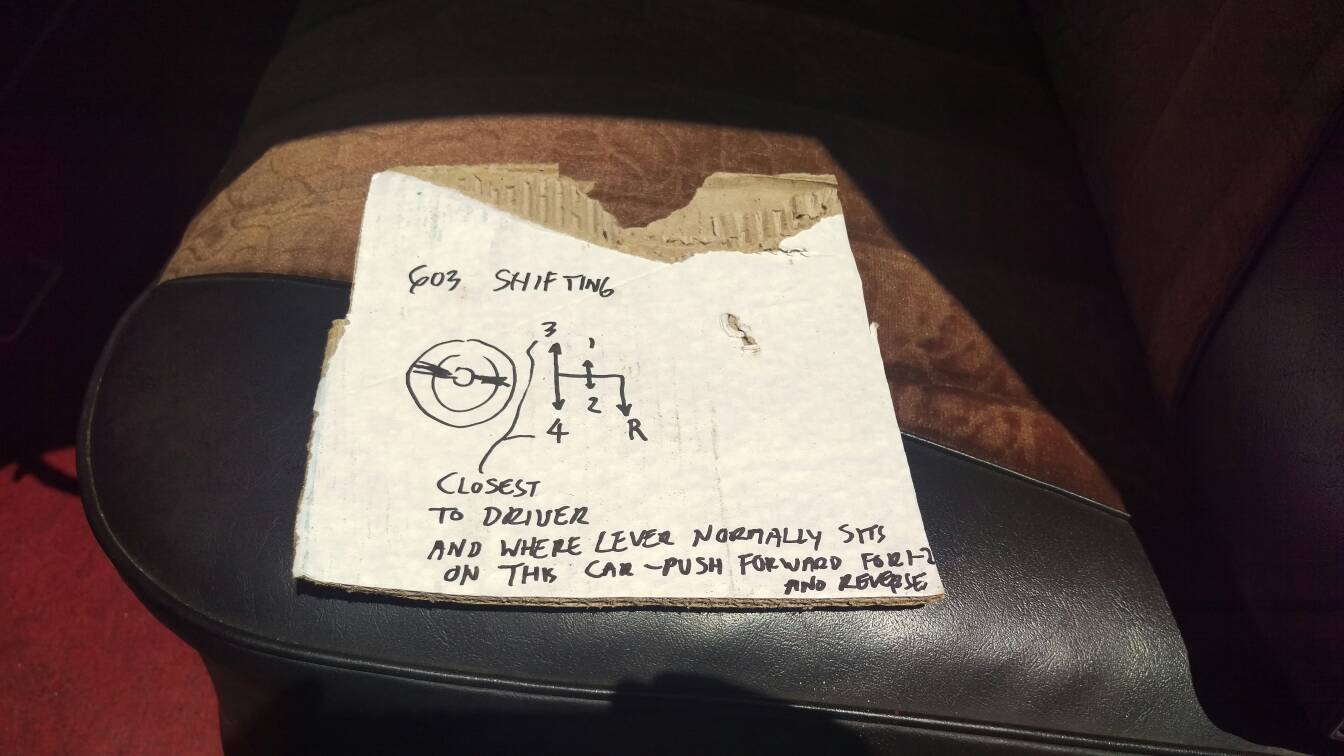 603 SHIFTING
3
1
2
4
R
CLOSEST
TO DRIVER
AND WHERE LEVER NORMALLY SITS
ON THIS CAR - PUSH FORWARD FOR 1-2
AND REVERSE